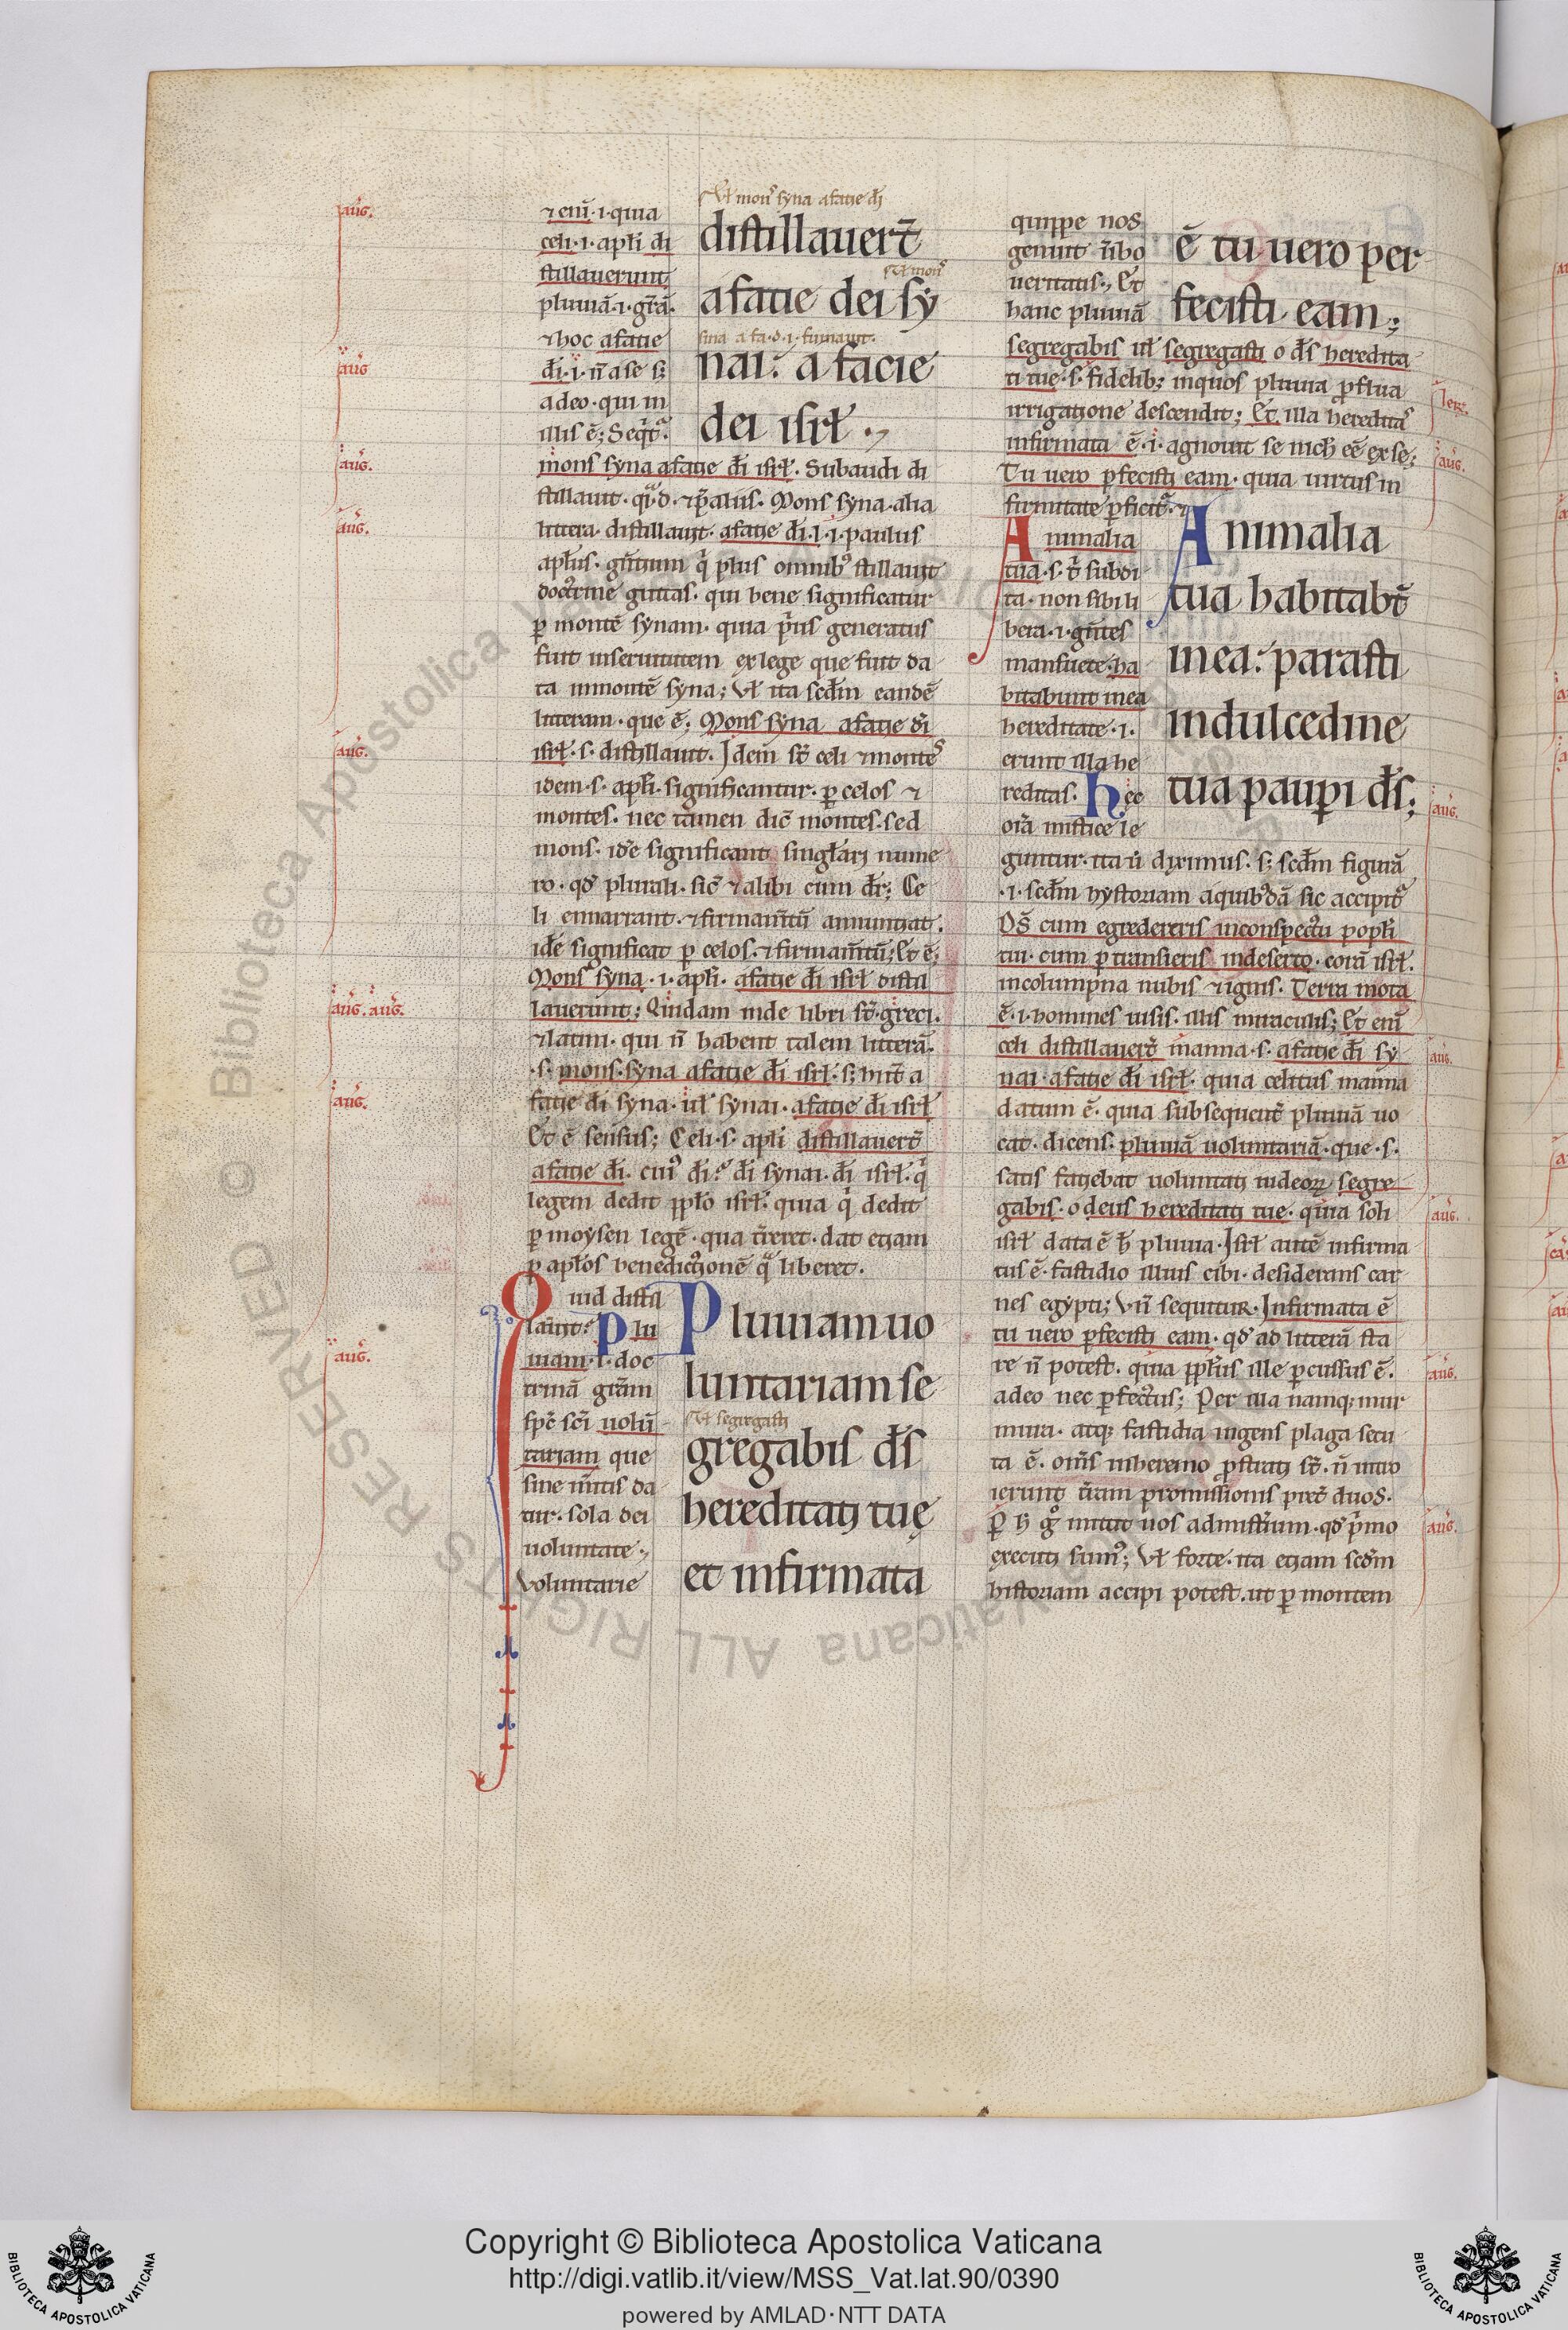 ⁊ eni̅·i·quia
celi·i·apl̅i di
stillauerunt
pluuiā·i·gr̅ā·
⁊ hoc afatie
d̅i·i·n̅ a se s;
a deo·qui in
illis ē; Seq̅t᷑·
Vl̅ mons syna afatie d̅i
distillauer̅t
afatie dei sy
nai: a facie
dei isrl̅.
mons syna afatie d̅i isrl̅. Subaudi di
stillauit. q̅i·d·⁊ p̅alius. Mons syna·alia
littera·distillaut̅·afatie d̅i·I·i·paulus
apl̅us·gn̅tium q̅ plus omnib; stillauit
doctrine guttas·qui bene significatur
p̲ montē synam·quia p̅us generatus
fuit inseruitutem exlege que fuit da
ta inmontē syna; Vl̅ ita scd̅m eandē
litteram·que ē; Mons syna afatie d̅i
isrl̅·s·distillauit. Idem st̅ celi ⁊ montes
idem·s·apl̅i·significantur·p̲ celos ⁊
montes·nec tamen dic̅ montes·sed
mons·ide̅ significant singlari nume
ro·qd̅ plurali·sic̅ ⁊ alibi cum d̅r; Ce
li enarrant·⁊ firmam̅tū annuntiat·
ide̅ significat p̲ celos·⁊ firmam̅tū; Et ē;
Mons syna·i·apl̅i·afatie d̅i isrl̅ distil
lauerunt; Quidam inde libri st̅·greci·
⁊ latini·qui n̅ habent talem litterā·
·s·mons·syna afatie d̅i isrl̅·s; hn̅t a
fatie d̅i syna·ul̅ synai·afatie d̅i isrl̅
Et ē sensus; Celi·s·apl̅i distillauer̅t
afatie d̅i·cui᷒ d̅i? d̅i synai·d̅i isrl̅·q̅
legem dedit pp̅lo isrl̅·quia q̅ dedit
p̲ moysen legē·qua t̅reret·dat etiam
p̲ apl̅os benedictionē q̅a liberet.
Quid distil
lauit? Plu
uiam·i·doc
trinā gr̅am
spc̅ sc̅i uolū
tariam que
sine m̅itis da
tur·sola dei
uoluntate·
Voluntarie
Pluuiam uo
luntariam se
Vl̅ segregasti
gregabis d̅s
hereditati tuę
et infirmata
quippe nos
genuit u̅bo
ueritatis; Et
hanc pluuiā
ē tu uero per
fecisti eam;
segregabis ul̅ segregasti o d̅s heredita
ti tue·s·fidelib; inquos pluuia p̲flua
irrigatione descendit; Et illa hereditas
infirmata ē·i·agnouit se nich̅ ee̅ ex se;
Tu uero p̲fecisti eam·quia uirtus in
firmitate p̲ficit᷑·
Animalia
tua·s·t̅ subdi
ta·non sibi li
bera·i·gn̅tes
mansuete·ha
bitabunt in ea
hereditate·i·
erunt illa he
reditas. Hęc
Animalia
tua habitabt̅
inea: parasti
indulcedine
tua paup̲i d̅s;
om̅a mistice le
guntur·ita u̅ diximus·s; scd̅m figurā
·i·scd̅m hystoriam aquibdā sic accipit᷑
D̅s cum egredereris inconspectu popl̅i
tui·cum p̲transieris indeserto·corā isrl̅·
incolumpna nubis ⁊ ignis. Terra mota
ē·i·homines uisis·illis miraculis; Et eni̅
celi distillauer̅t manna·s·afatie d̅i sy
nai·afatie d̅i isrl̅·quia celitus manna
datum ē·quia subsequent̅ pluuiā uo
cat·dicens·pluuiā uoluntariā·que·s·
satis fatiebat uoluntati iudeoꝝ segre
gabis·o deus hereditati tue·quia soli
isrl̅ data ē h̅ pluuia·Isrl̅ autē infirma
tus ē·fastidio illius cibi·desiderans car
nes egypti; Vn̅ sequitur·Infirmata ē
tu uero p̲fecisti eam·qd̅ ad litterā sta
re n̅ potest·quia ppl̅us ille p̲cussus ē·
adeo nec p̲fectus; Per illa namq; mur
mura·atq; fastidia ingens plaga secu
ta ē·om̅s inheremo p̲strati st̅·n̅ intro
ierunt t̅ram promissionis pret̅ duos.
P̲ h̅ g̊ mittit uos admist̅ium·qd̅ p̅mo
executi sum᷒; Vl̅ forte·ita etiam scd̅m
historiam accipi potest·ut p̲ montem
aug̅.
Copyright © Biblioteca Apostolica Vaticana
http://digi.vatlib.it/view/MSS_Vat.lat.90/0390
powered by AMLAD·NTT DATA
BIBLIOTECA APOSTOLICA VATICANA
BIBLIOTECA APOSTOLICA VATICANA